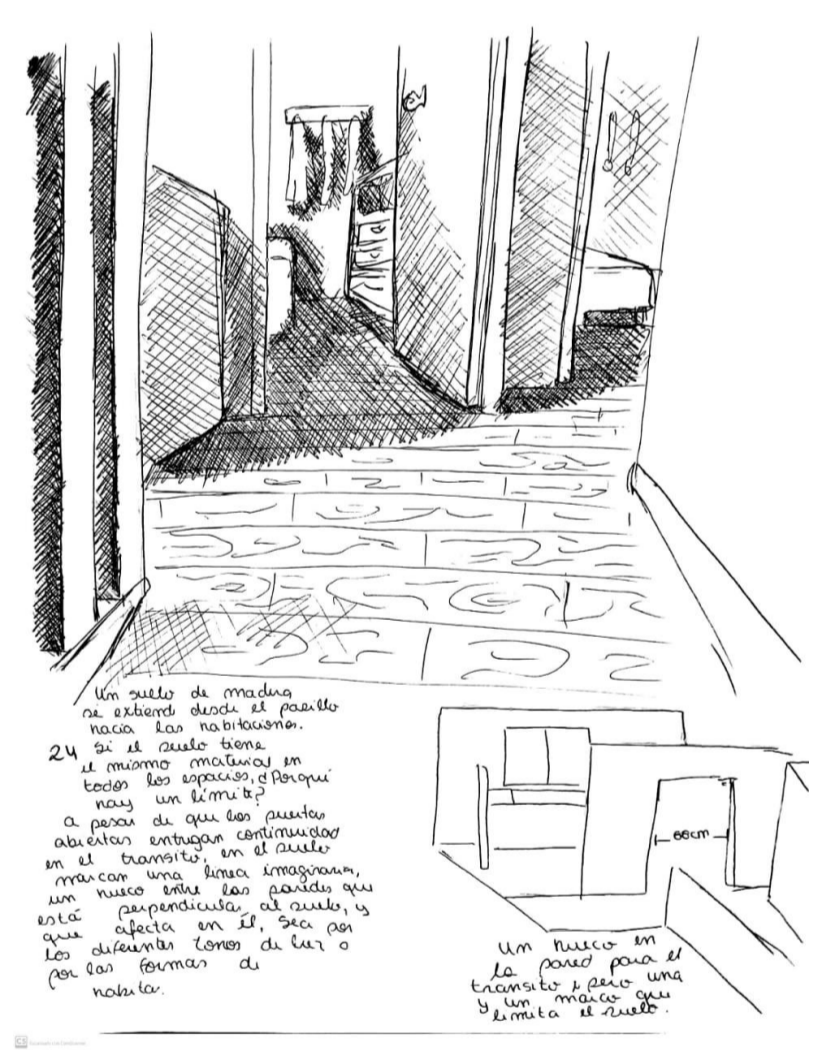 Un suelo de madera
se extiende desde el pasillo
hacia las habitaciones.
24 Si el suelo tiene
el mismo material en
todos los espacios, ¿Porqué
hay un límite?
a pesar de que las puertas
abiertas entregan continuidad
en el transito, en el suelo
marcan una línea imaginaria,
un hueco entre las paredes que
está perpendicular al suelo, y
que afecta en él, sea por
los diferentes tonos de luz o
por las formas de
habitar.
66cm
Un hueco en
la pared para el
transito, pero una
y un marco que
limita el suelo.
CS Escaneado con CamScanner